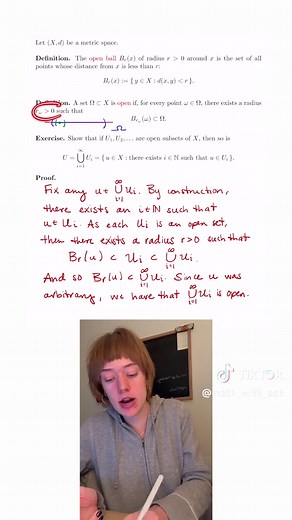 Let (X, d) be a metric space.
Definition. The open ball Bᵣ(x) of radius r > 0 around x is the set of all
points whose distance from x is less than r:
Bᵣ(x) := { y ∈ X : d(x, y) < r }.
Definition. A set Ω ⊂ X is open if, for every point ω ∈ Ω, there exists a radius
r_ω > 0 such that
B_{r_ω}(ω) ⊂ Ω.
Ω
Exercise. Show that if U₁, U₂, ... are open subsets of X, then so is
U = ⋃_{i=1}^∞ Uᵢ = { u ∈ X : there exists i ∈ ℕ such that u ∈ Uᵢ }.
Proof.
Fix any u ∈ ⋃_{i=1}^∞ Uᵢ. By construction,
there exists an i ∈ ℕ such that
u ∈ Uᵢ. As each Uᵢ is an open set,
then there exists a radius r>0 such that
Bᵣ(u) ⊂ Uᵢ ⊂ ⋃_{i=1}^∞ Uᵢ.
And so Bᵣ(u) ⊂ ⋃_{i=1}^∞ Uᵢ. Since u was
arbitrary, we have that ⋃_{i=1}^∞ Uᵢ is open.